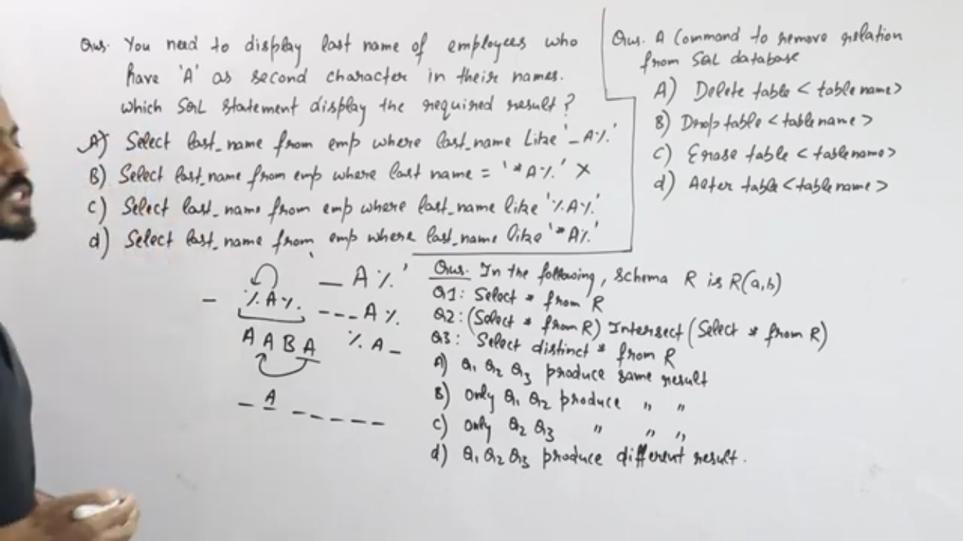 Ques. You need to display last name of employees who
have 'A' as second character in their names.
Which SQL statement display the required result?
A) Select last_name from emp where last_name Like '_A%'
B) Select last_name from emp where last name = '*A%' X
C) Select last_name from emp where last_name like '%A%'
d) Select last_name from emp where last_name like '*A%'
Ques. A Command to remove relation
from SQL database
A) Delete table < table name>
B) Drop table < table name >
C) Erase table < table name>
d) Alter table < table name >
_ %A%. _ A %'
_ _ _ A %.
A A B A % A _
_ A _ _ _ _ _
Ques. In the following, schema R is R(a,b)
Q1: Select * from R
Q2: (Select * from R) Intersect (Select * from R)
Q3: Select distinct * from R
A) Q1 Q2 Q3 produce same result
B) only Q1 Q2 produce " "
C) only Q2 Q3 " " "
d) Q1 Q2 Q3 produce different result.